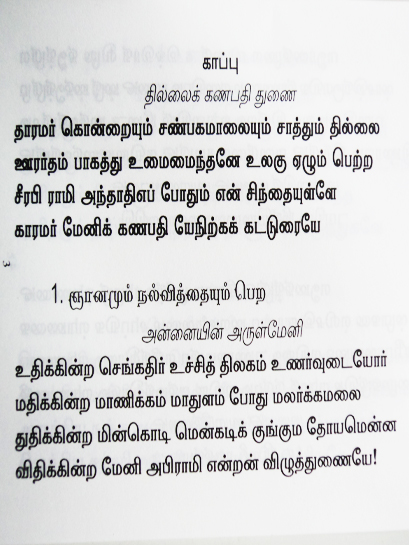 காப்பு
தில்லைக் கணபதி துணை
தாரமர் கொன்றையும் சண்பகமாலையும் சாத்தும் தில்லை
ஊரர்தம் பாகத்து உமைமைந்தனே உலகு ஏழும் பெற்ற
சீரபி ராமி அந்தாதிளப் போதும் என் சிந்தையுள்ளே
காரமர் மேனிக் கணபதி யேநிற்கக் கட்டுரையே
3
1. ஞானமும் நல்வித்தையும் பெற
அன்னையின் அருள்மேனி
உதிக்கின்ற செங்கதிர் உச்சித் திலகம் உணர்வுடையோர்
மதிக்கின்ற மாணிக்கம் மாதுளம் போது மலர்க்கமலை
துதிக்கின்ற மின்கொடி மென்கடிக் குங்கும தோயமென்ன
விதிக்கின்ற மேனி அபிராமி என்றன் விழுத்துணையே!